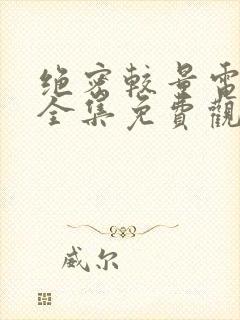 绝密較量電
全集免費觀
威尔